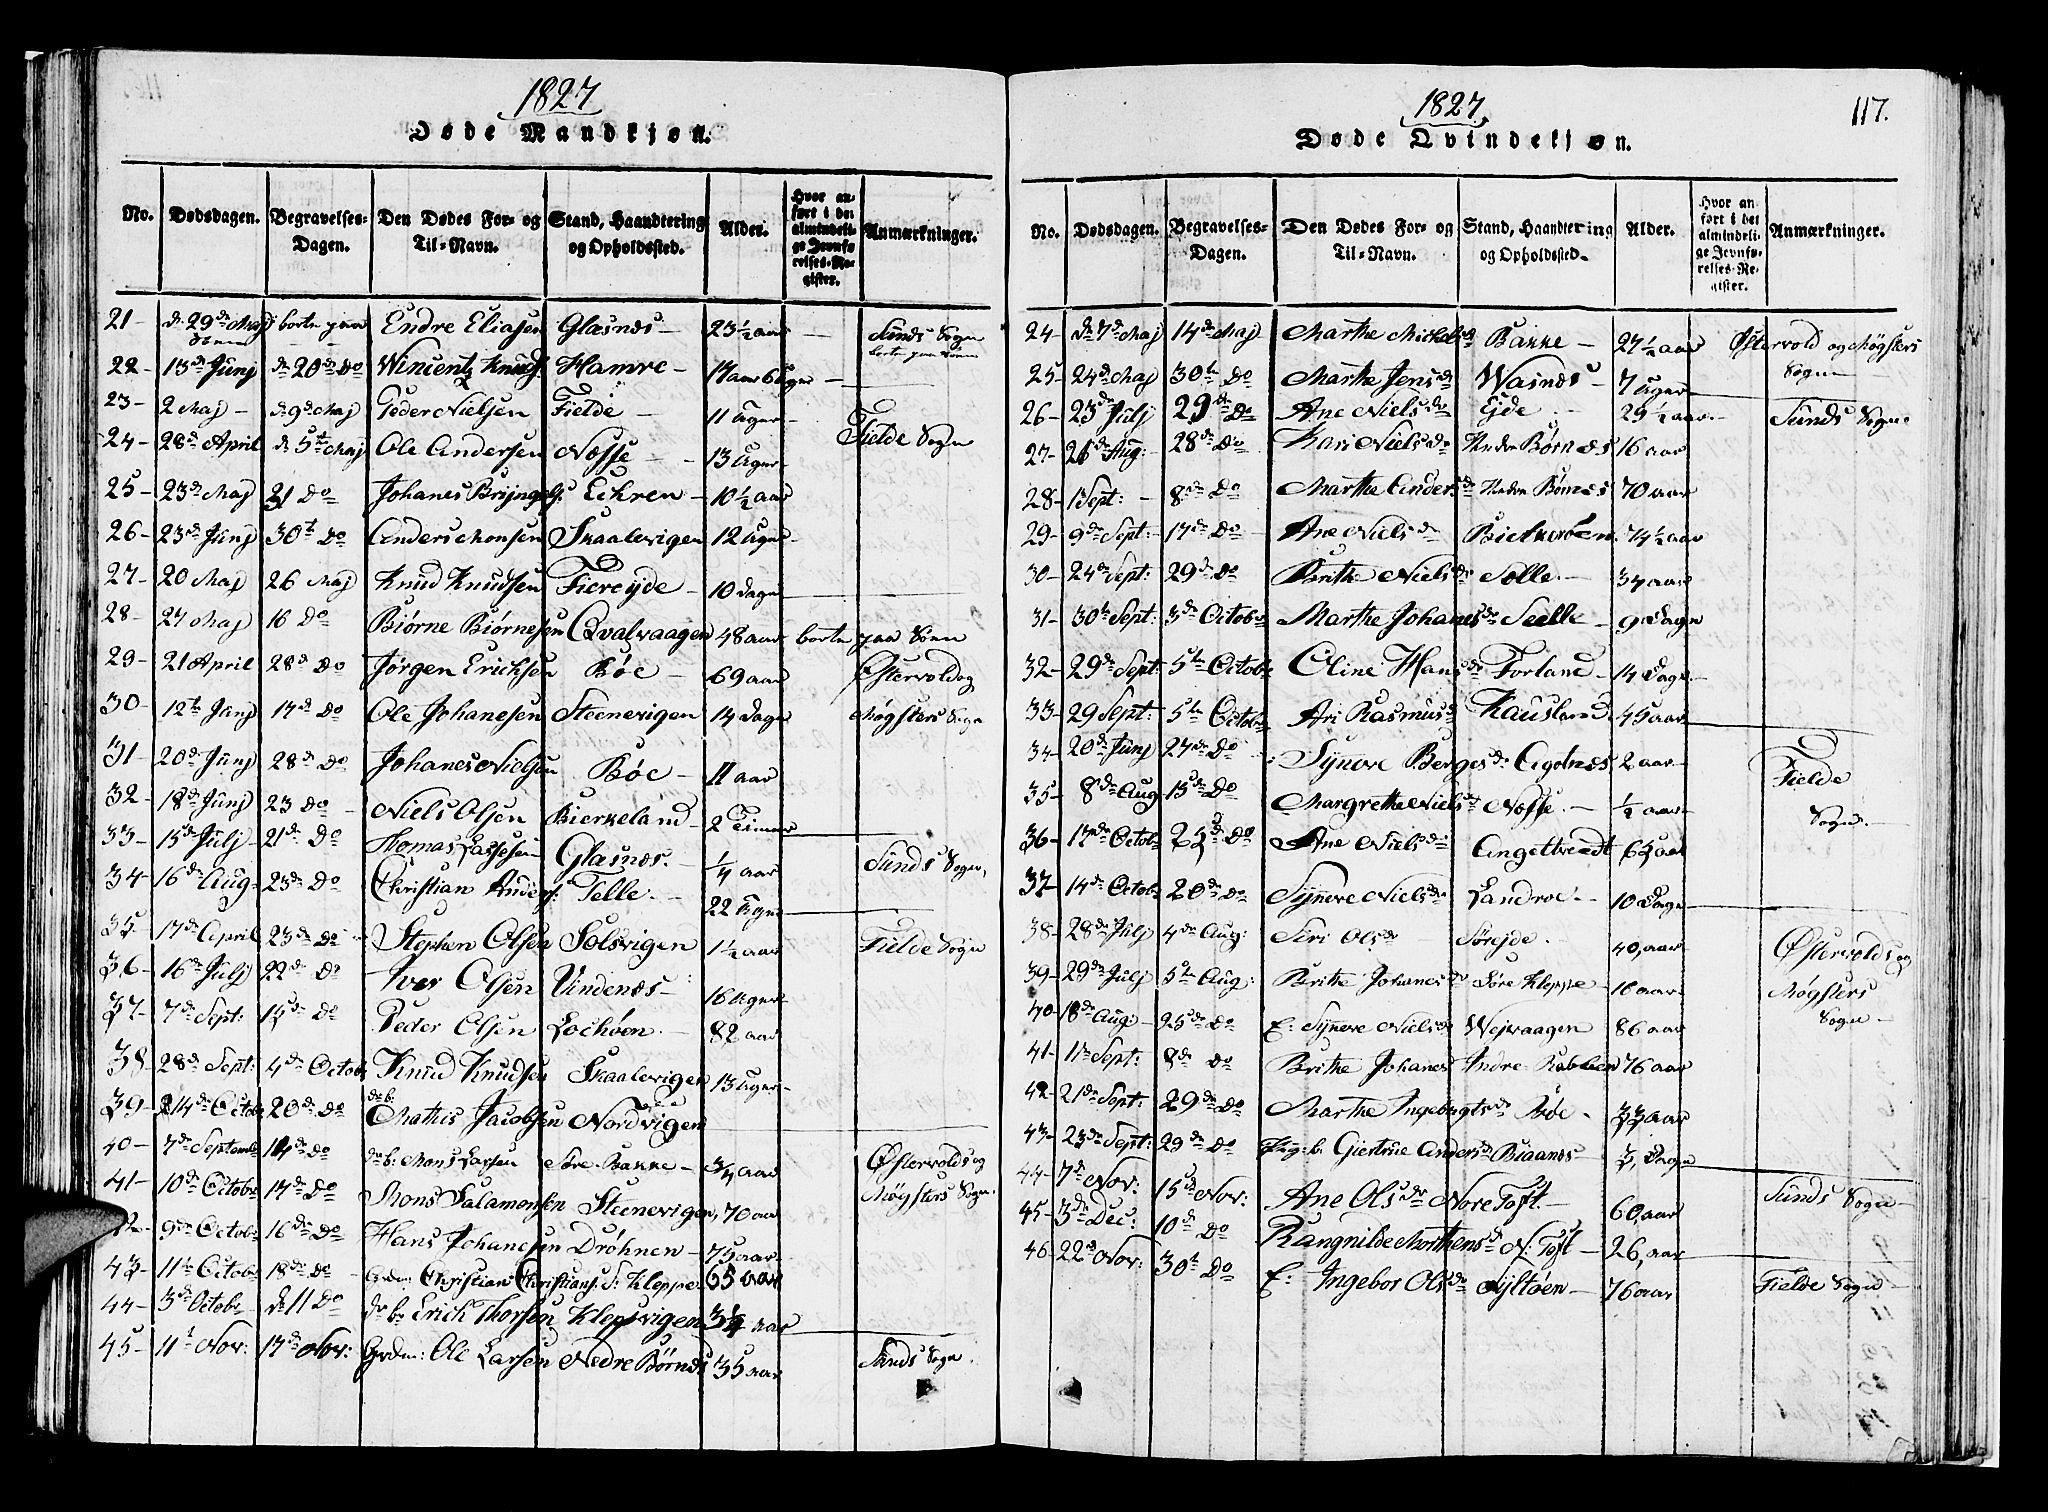 1827
Døde Mandkjøn.
No. Dødsdagen. Begravelses-Dagen. Den Dødes For- og Til-Navn. Stand, Haandtering og Opholdssted. Alder. Hvor anført i det almindelige Jevnførelses-Register. Anmærkninger.
21- d. 29de Maj borte paa Søen Endre Eliasen Glæsnæs- 23½ aar Sunds Sogn borte paa Søen
22- 13de Junj d. 20de Do Wincentz Knuds: Hamre-
23- 2 Maj- d. 9de Maj Peder Nielsen Fielde- 11 Uger-
24- 28de April d. 5te Maj Ole Andersen Nosse- 13 Uger- Fielde Sogn
25- 23de Maj 31 Do Johanes Brijngels: Echren- 10½ aar
26- 23de Junj 30te Do Anders Monsen Skaalevigen 12 Uger-
27- 20 Maj 26 Maj Knud Knudsen Fiereijde- 10 Dage
28- 27 Maj 16 Do Biørne Biørnesen Qvalvaagen 48 aar borte paa Søen
29- 21 April 28de Do Jørgen Erichsen Bøe- 69 aar Østervold og
30- 12te Junj 17de Do Ole Johanesen Steenevigen 14 Dage Møgsters Sogn
31- 20de Junj 28de Do Johanes Nielsen Bøe- 11 aar
32- 18de Junj 23 Do- Niels Olsen Bierkeland- 2 Timer
33- 15de Julj- 21de Do Thomas Lassesen Glæsnæs.- ¼ aar Sunds Sogn,
34- 16de Aug: 23de Do Christian Anders: Telle.- 22 Uger
35- 17de April 23de Do Stephen Olsen Solsvigen 1½ aar Fielde Sogn
36- 16de Julj 22de Do Iver Olsen Vindenæs- 16 Uger-
37- 7de Sept: 15de Do Peder Olsen Lochøen.- 82 aar
38- 28de Sept: 4de Octob: Knud Knudsen Skaalevigen 13 Uger-
39- 14de Octob: 20de Do de b: Mathis Jacobsen Nordvigen
40- 7de Septemb: 14de Do de b: Mons Larsen Søre Bakke- ¾ aar Østervolds og
41- 10de Octob: 17de Do Mons Salamonsen Steenevigen, 70 aar Møgsters Sogn.
42- 9de Octob: 16de Do Hans Johanesen Drøhnen- 75 aar-
43- 11te Octob: 18de Do- Grdm: Christian Christians: S: Kleppe 65 aar
44- 3de Octob: d. 11 Do de b: Erich Thorsen Klepsvigen 3¼ aar
45- 11te Nov: 17de Nov: Grdm: Ole Larsen Nedre Børnes 35 aar Sunds Sogn.
1827.
117.
Døde Qvindekjøn.
No. Dødsdagen. Begravelses-Dagen. Den Dødes For- og Til-Navn. Stand, Haandtering og Opholdssted. Alder. Hvor anført i det almindelige Jevnførelses-Register. Anmærkninger.
24- d. 7de Maj 14de Maj Marthe Michelsd: Bakke- 27½ aar Østervold og Møgsters
25- 24de Maj 30te Do Marthe Jensde Wasnæs- 7 Uger- Sogn
26- 23de Julj 29de Do Ane Nielsde Ejde.- 29½ aar- Sunds Sogn
27- 21de Aug: 28de Do Kari Nielsde Nedre Børnes 16 aar
28- 1 Sept:- 8de Do Marthe Andersde Nedre Børnes 70 aar
29- 9de Sept:- 17de Do Ane Nielsde 74½ aar
30- 24de Sept: 29de Do Brithe Nielsde Solle.- 34 aar
31- 30te Sept: 3de Octob: Marthe Johanesde Selle- 9 Dage
32- 29de Sept: 5te Octob: Oline Hansde Forland- 14 Dage-
33- 29 Sept: 5te Octob: Ari Rasmusd: Kausland 45 aar
34- 20de Junj 27de Do Synneve Bergesde Agotnæs 2 aar- Fielde
35- 8de Aug 15de Do Margrethe Nielsde Nosse.- ½ aar- Sogn.-
36- 17de Octob: 25de Do Ane Nielsde Angeltvedt 65 aar
37- 14de Octob: 20de Do Synneve Nielsde Landroe- 10 Dage
38- 28de Julj 4de Aug: Siri Olsde Sørejde. 40, aar Østervolds og
39- 29de Julj 5te Aug: Brithe Johanesde Søre Kleppe- 16 aar Møgsters
40- 18de Aug:- 25de Do E: Synneve Nielsde Wejvaagen 86 aar Sogn-
41- 1te Sept: 8de Do Brithe Johanes Indre 76 aar
42- 21de Sept: 29de Do Marthe Ingebrigtsde Bøe- 33 aar
43- 23de Sept: 29de Do Giertrue Andersd: Biaanes 3, Dage
44- 7de Nov: 15de Nov: Ane Olsde Nore Toft. 60, aar Sunds Sogn-
45- 3de Dec: 10de Do Rangnilde Morthensde N: Toft- 26, aar
46- 22de Nov: 30te Do E: Ingebor Olsde Nyltøen- 76 aar Fielde Sogn-